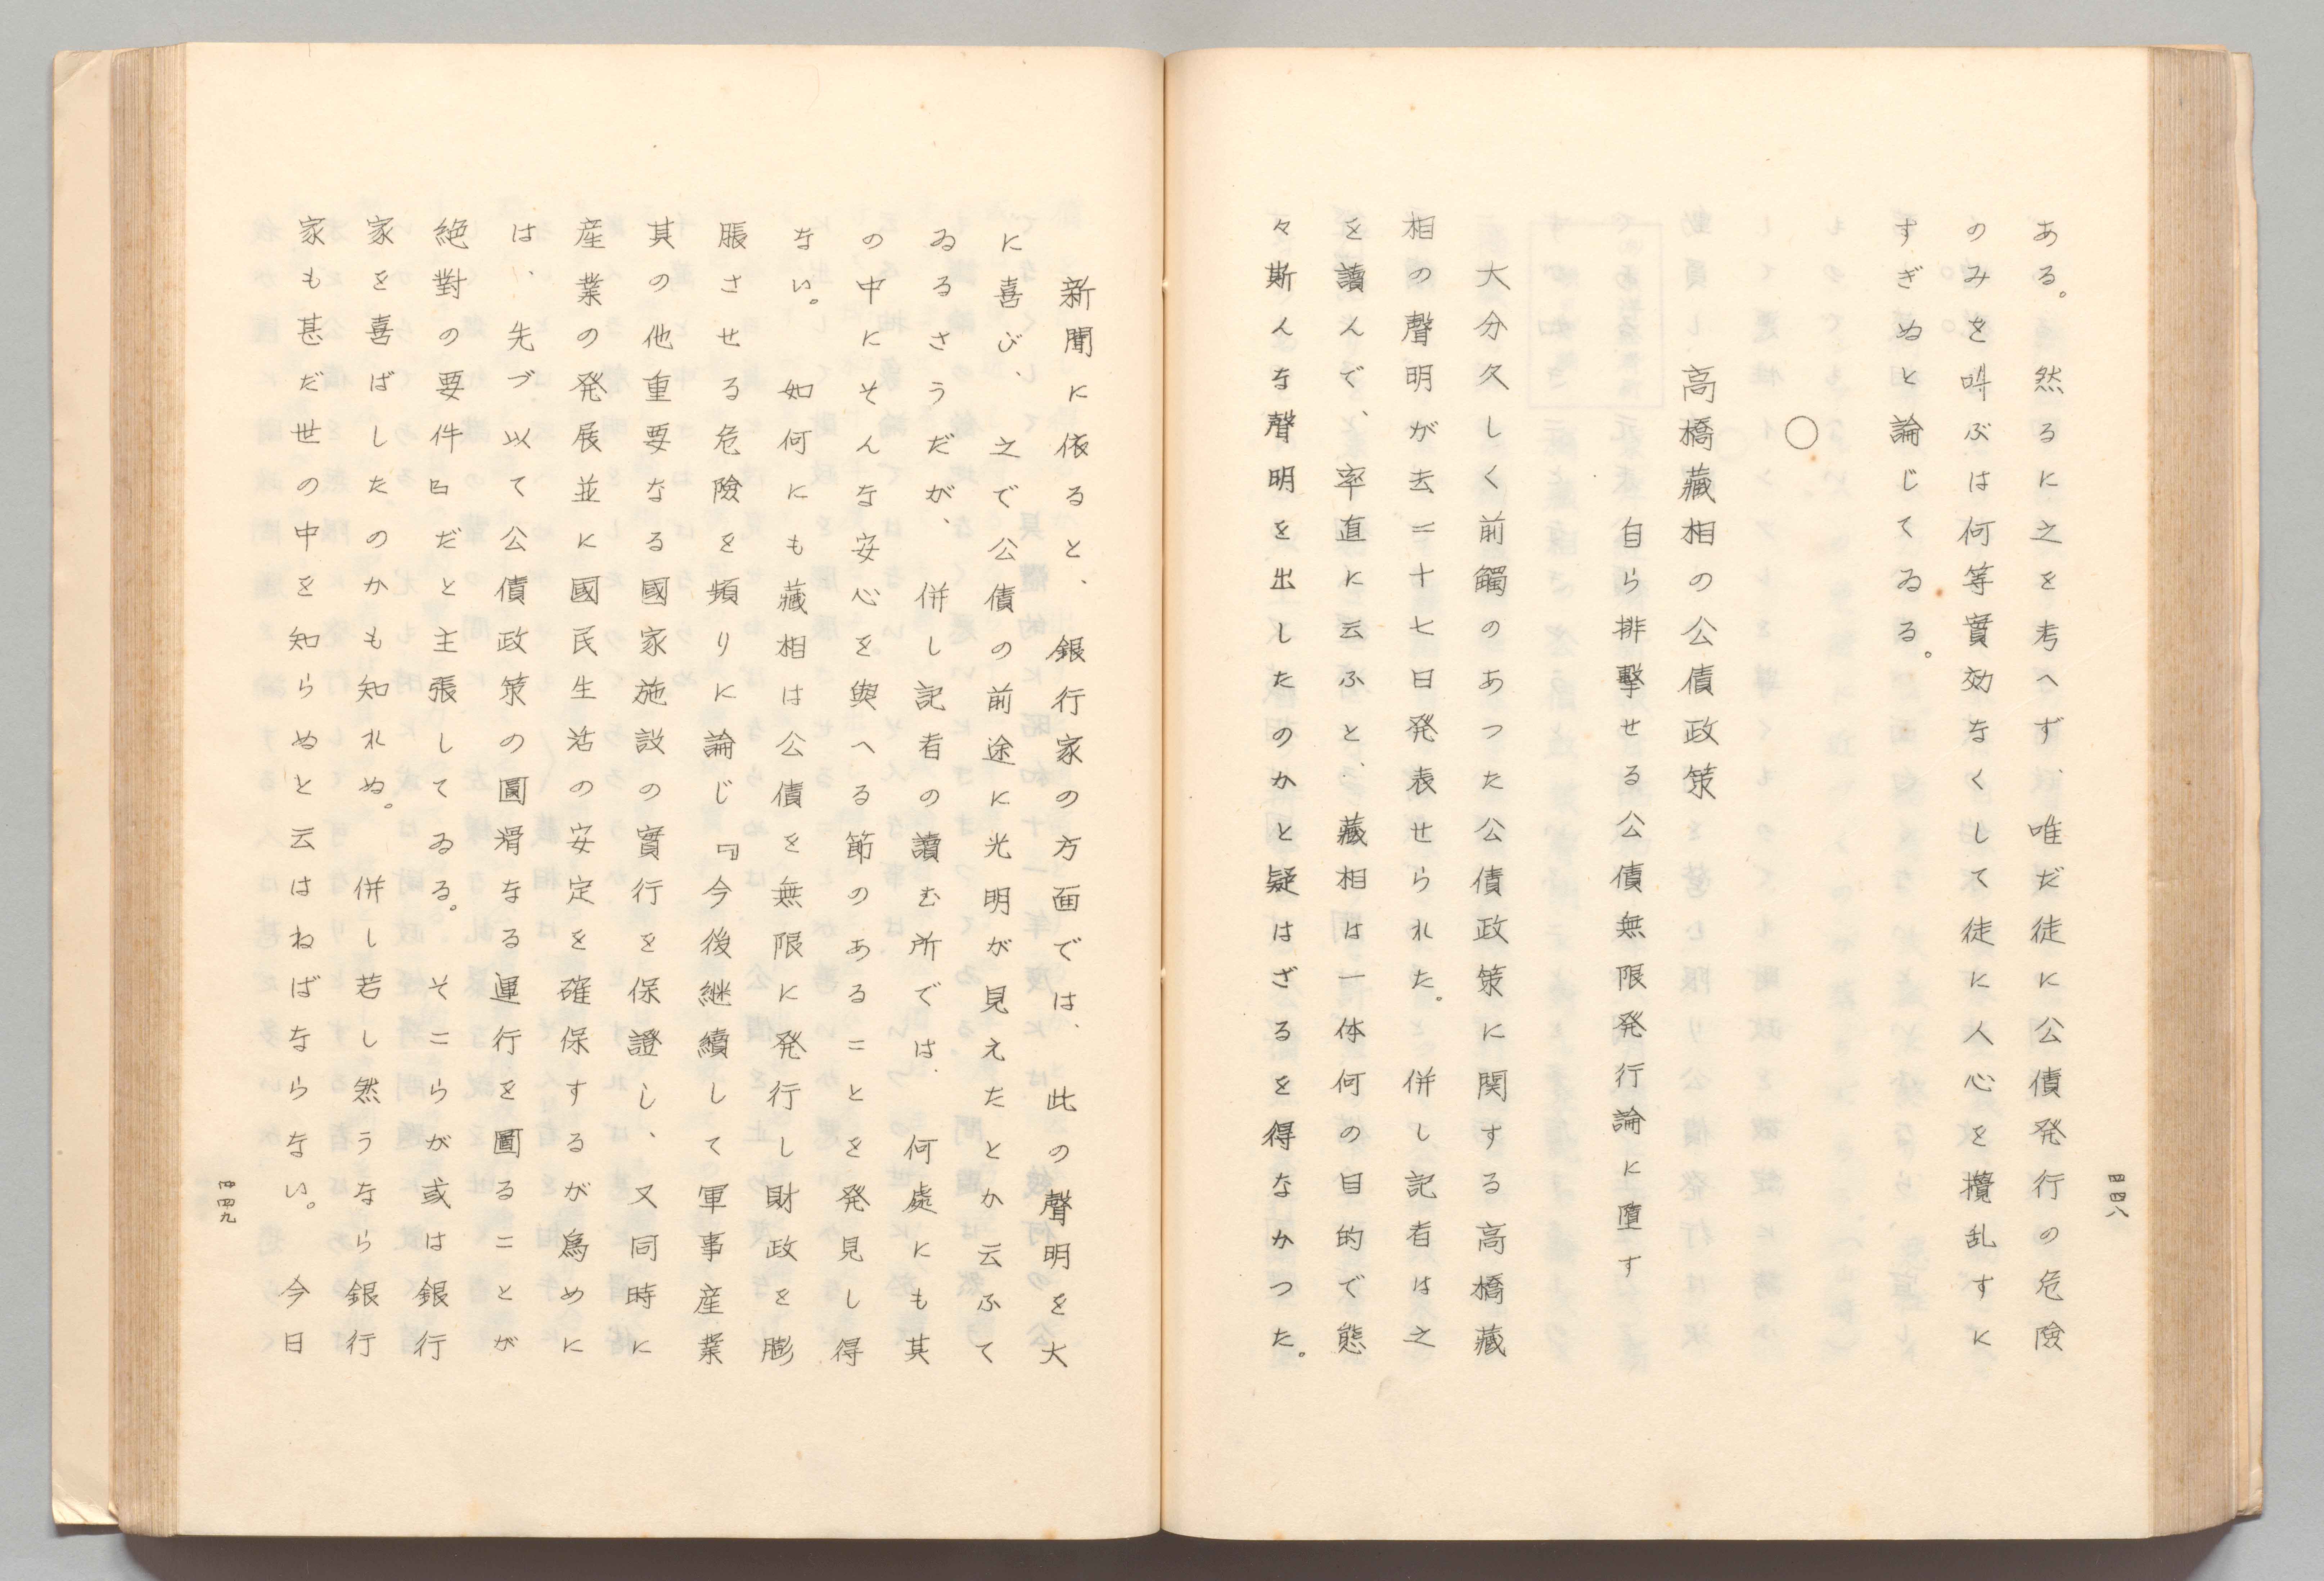 ある。然るに之を考へず、唯だ徒に公債発行の危險
のみを叫ぶは何等實効なくして徒に人心を攪乱すに
すぎぬと論じてゐる。
○
高橋藏相の公債政策
自ら排擊せる公債無限発行論に墮す
大分久しく前觸のあつた公債政策に関する高橋藏
相の聲明が去二十七日発表せられた。併し記者は之
を讀んで、率直に云ふと、藏相は一体何の目的で態
々斯んな聲明を出したのかと疑はざるを得なかつた。
四四八
新聞に依ると、銀行家の方面では、此の聲明を大
に喜び、之で公債の前途に光明が見えたとか云ふて
ゐるさうだが、併し記者の讀む所では、何處にも其
の中にそんな安心を與へる節のあることを発見し得
ない。如何にも藏相は公債を無限に発行し財政を膨
脹させる危險を頻りに論じ『今後継續して軍事産業
其の他重要なる國家施設の實行を保證し、又同時に
産業の発展並に國民生活の安定を確保するが爲めに
は、先づ以て公債政策の圓滑なる運行を圖ることが
絶對の要件』だと主張してゐる。そこらが或は銀行
家を喜ばしたのかも知れぬ。併し若し然うなら銀行
家も甚だ世の中を知らぬと云はねばならない。今日
四四九